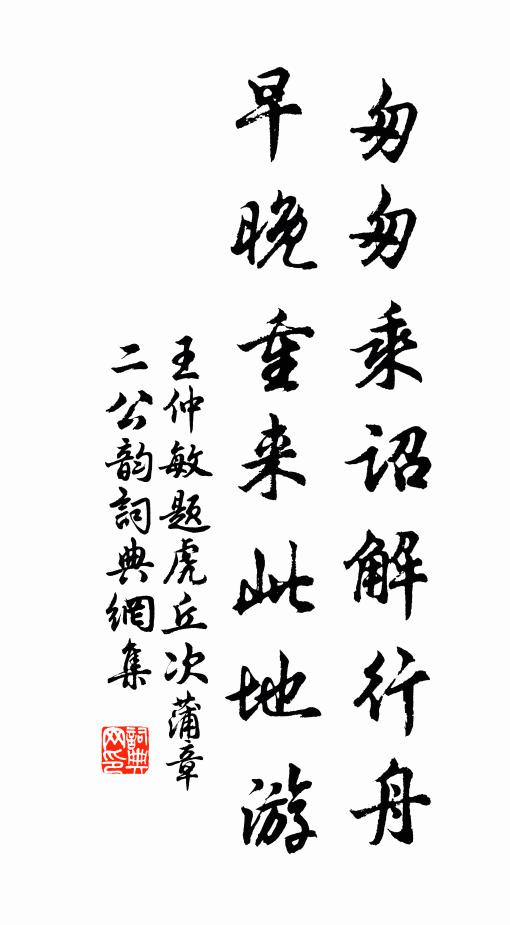 匆匆乘诏解行舟
早晚重来此地游
王仲敏题虎丘次蒲章
二公韵詞典網集
詞典网印